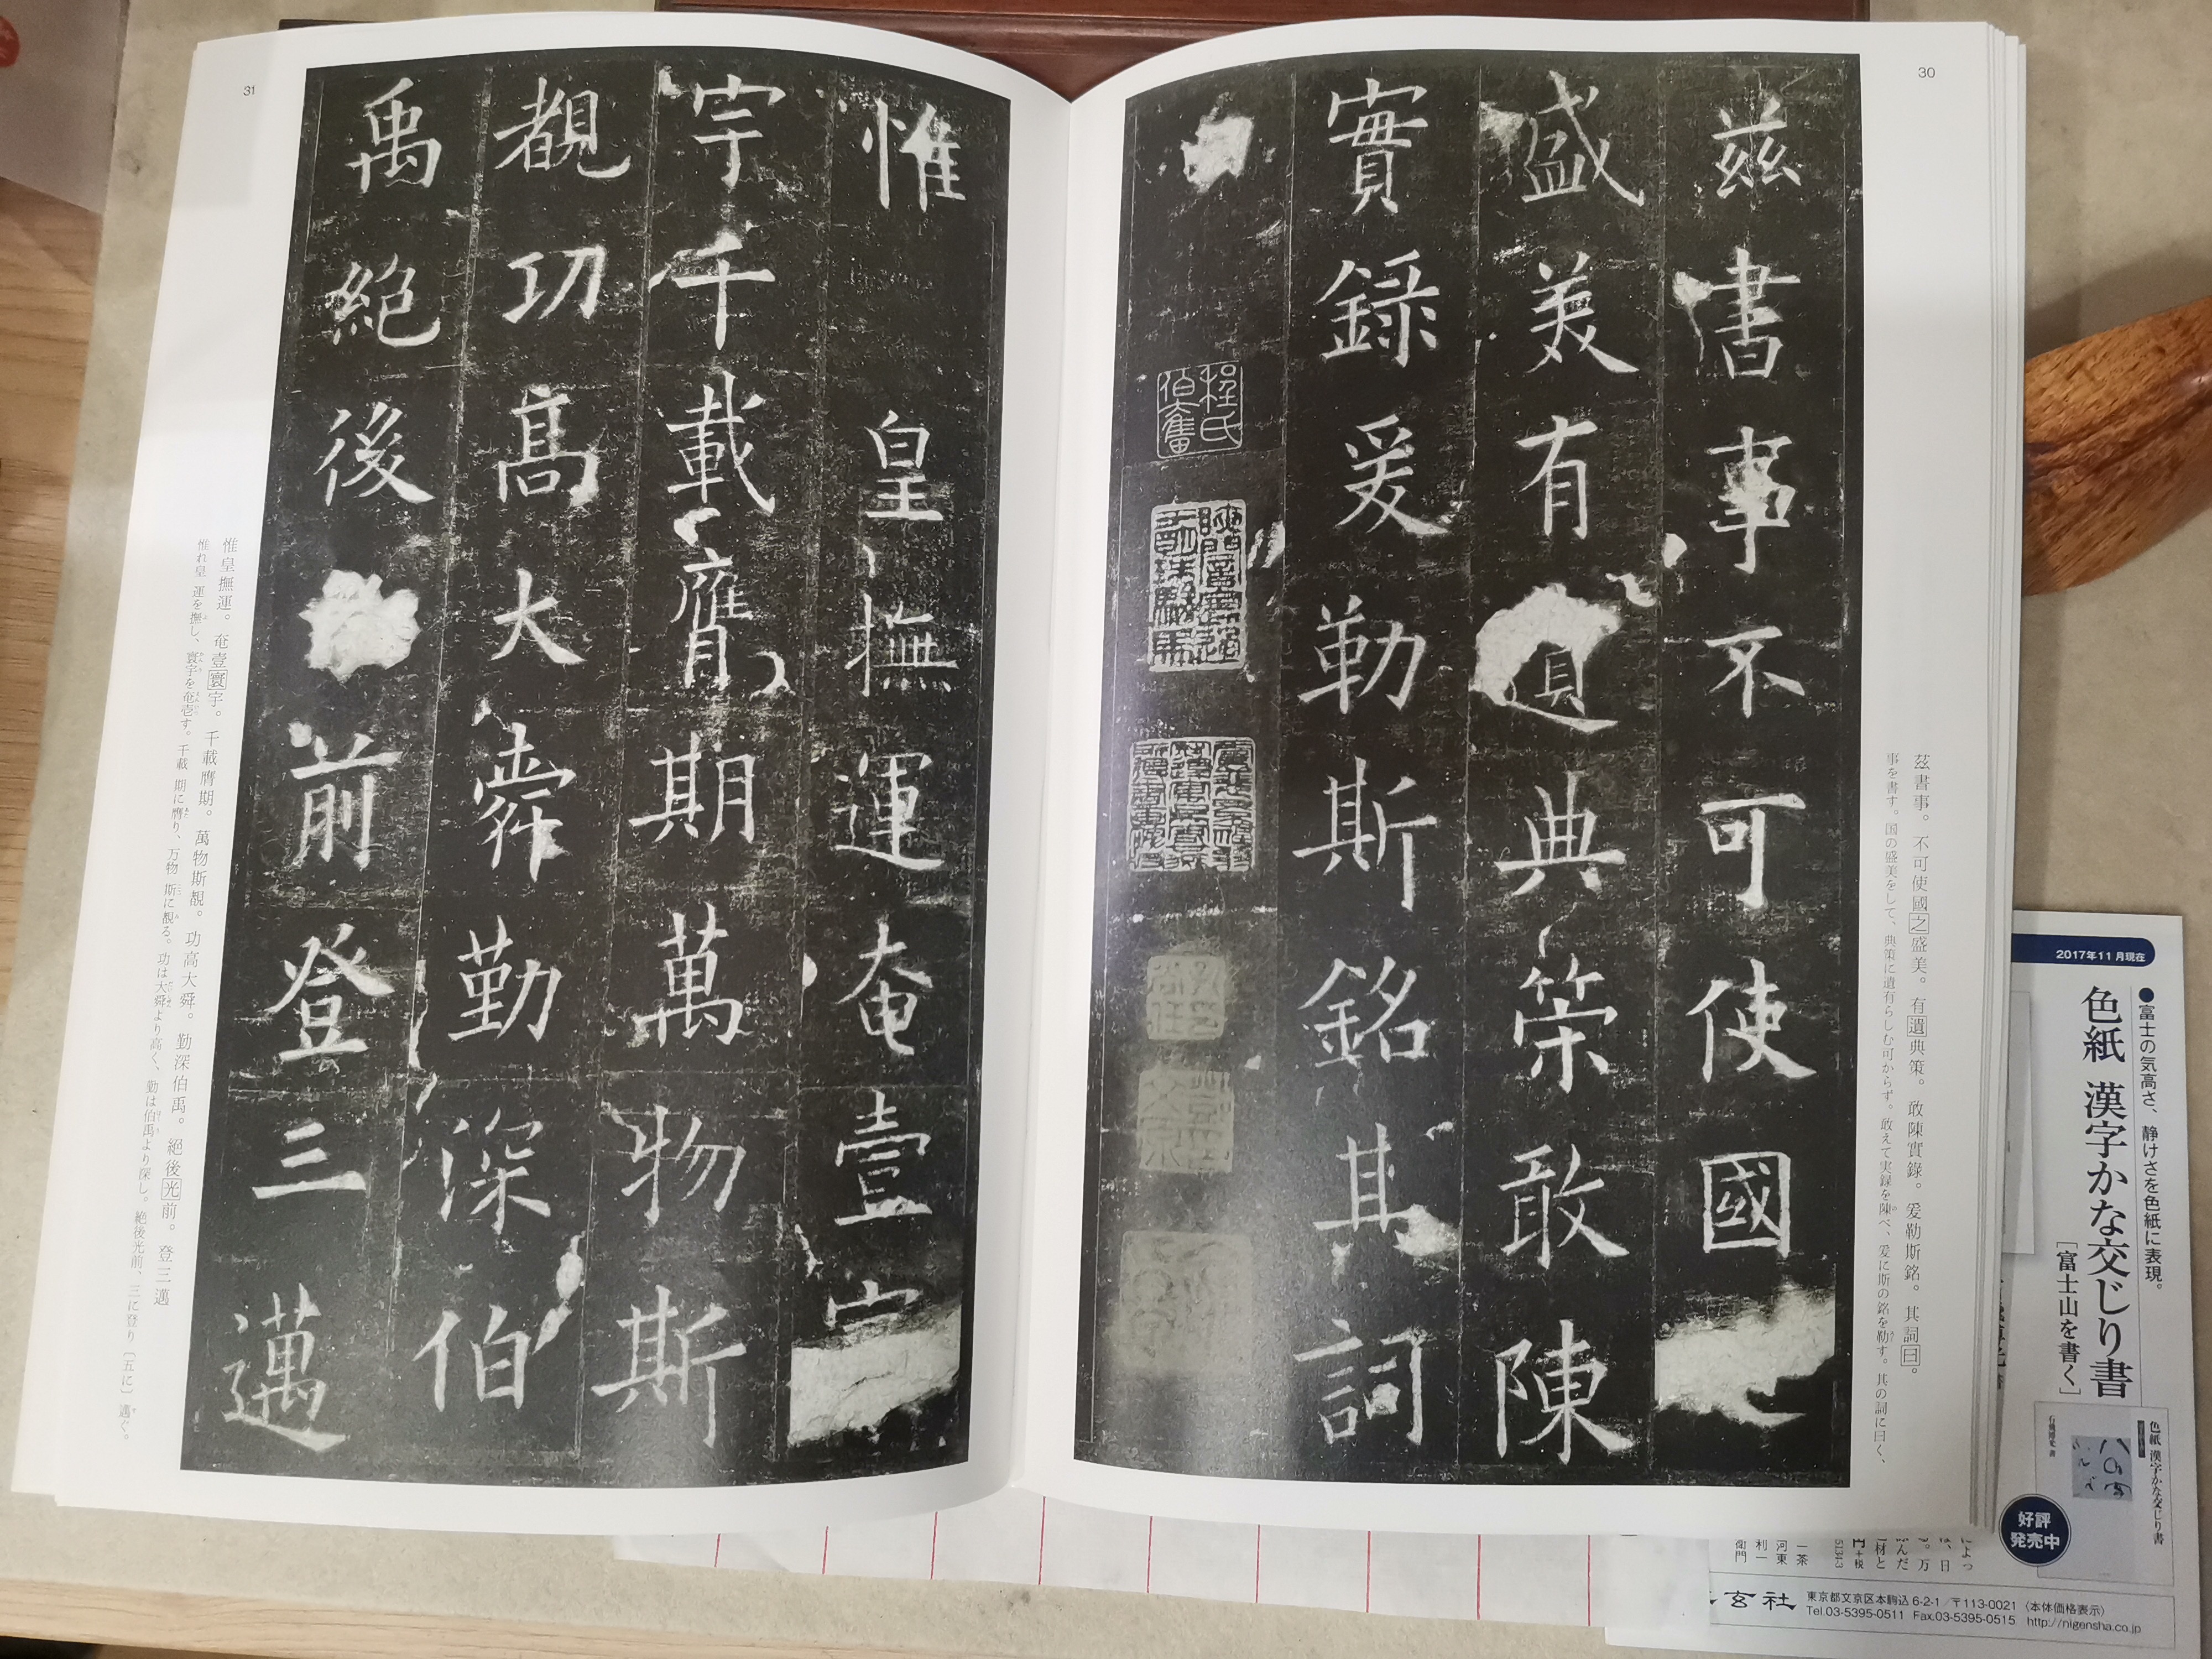 30
茲書事不可使國
盛美有遺典策敢陳
實錄爰勒斯銘其詞
程氏伯奮
茲書事。不可使國之盛美。有遺典策。敢陳實錄。爰勒斯銘。其詞曰。
事を書す。国の盛美をして、典策に遺有らしむ可からず。敢えて実録を陳べ、爰に斯の銘を勒す。其の詞に曰く、
31
惟皇撫運奄壹
宇千載膺期萬物斯
覩功高大舜勤深伯
禹絕後前登三邁
惟皇撫運。奄壹寰宇。千載膺期。萬物斯覩。功高大舜。勤深伯禹。絕後光前。登三邁
惟れ皇 運を撫し、寰宇を奄壱す。千載 期に膺り、万物 斯に覩る。功は大舜より高く、勤は伯禹より深し。絶後光前、三に登り〔五に〕邁ぐ。
2017年11月現在
●富士の気高さ、静けさを色紙に表現。
色紙 漢字かな交じり書
［富士山を書く］
色紙 漢字かな交じり書
好評
発売中
一茶
河東
利一
衛門
玄社
東京都文京区本駒込6-2-1／〒113-0021〈本体価格表示〉
Tel.03-5395-0511 Fax.03-5395-0515 http://nigensha.co.jp